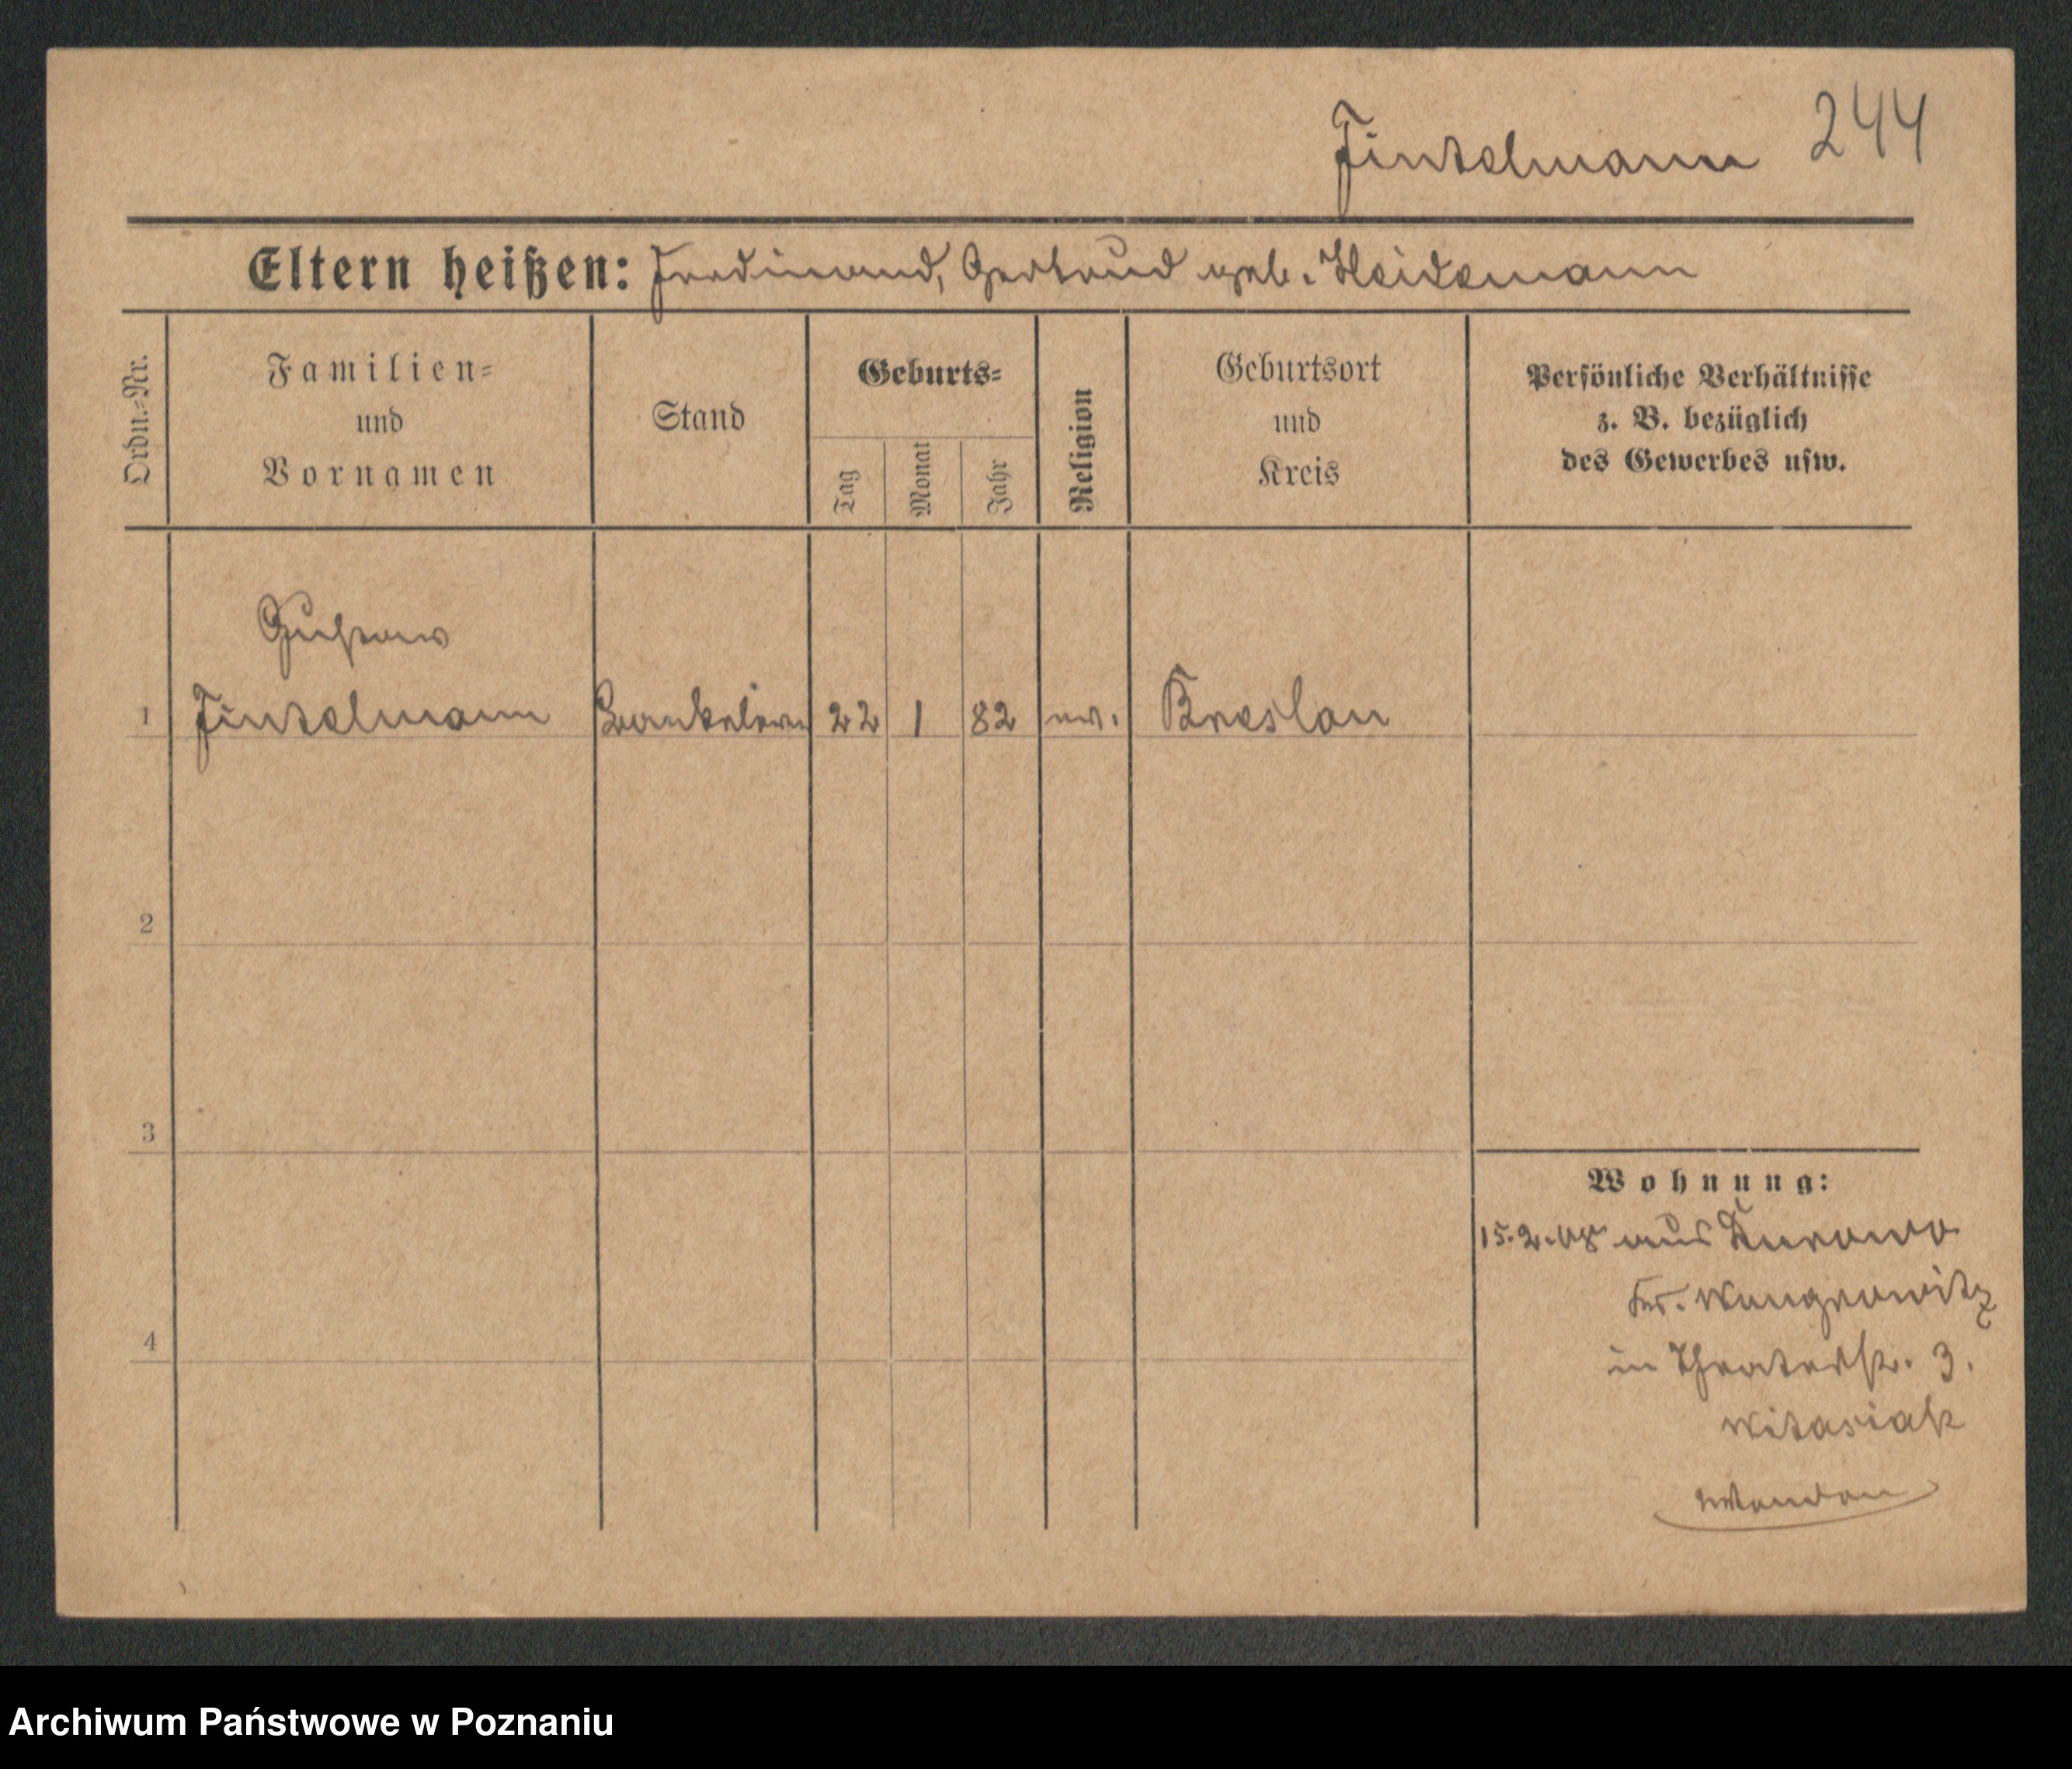 Fintelmann 244
Eltern heißen: Ferdinand, Gertrud geb. Heidemann
Ordn.-Nr.
Familien-
und
Vornamen
Stand
Geburts-
Tag
Monat
Jahr
Religion
Geburtsort
und
Kreis
Persönliche Verhältnisse
z. B. bezüglich
des Gewerbes usw.
Gustav
1 Fintelmann 22 1 82 ev. Breslau
2
3
4
Wohnung:
15.2.08 aus Durowo
Kr. Wongrowitz
in Theaterstr. 3.
Witasiak
Archiwum Państwowe w Poznaniu